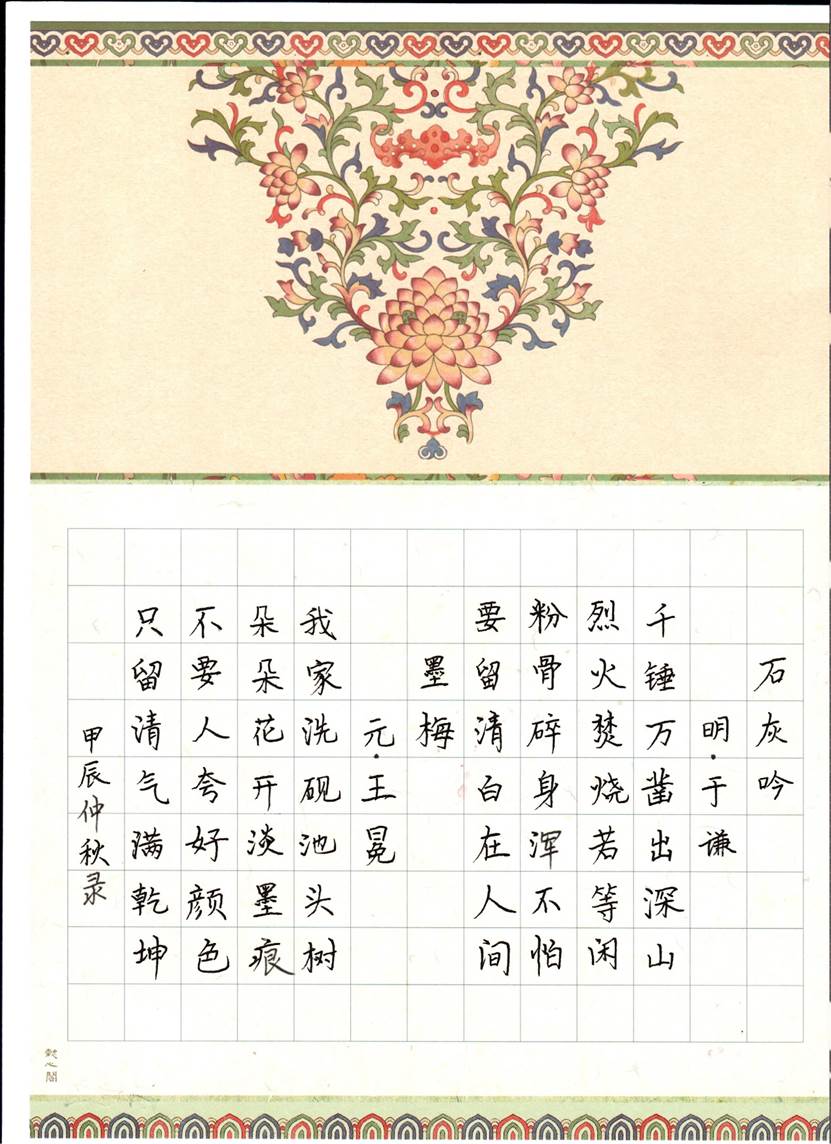 石灰吟
明·于谦
千锤万凿出深山
烈火焚烧若等闲
粉骨碎身浑不怕
要留清白在人间
墨梅
元·王冕
我家洗砚池头树
朵朵花开淡墨痕
不要人夸好颜色
只留清气满乾坤
甲辰仲秋录